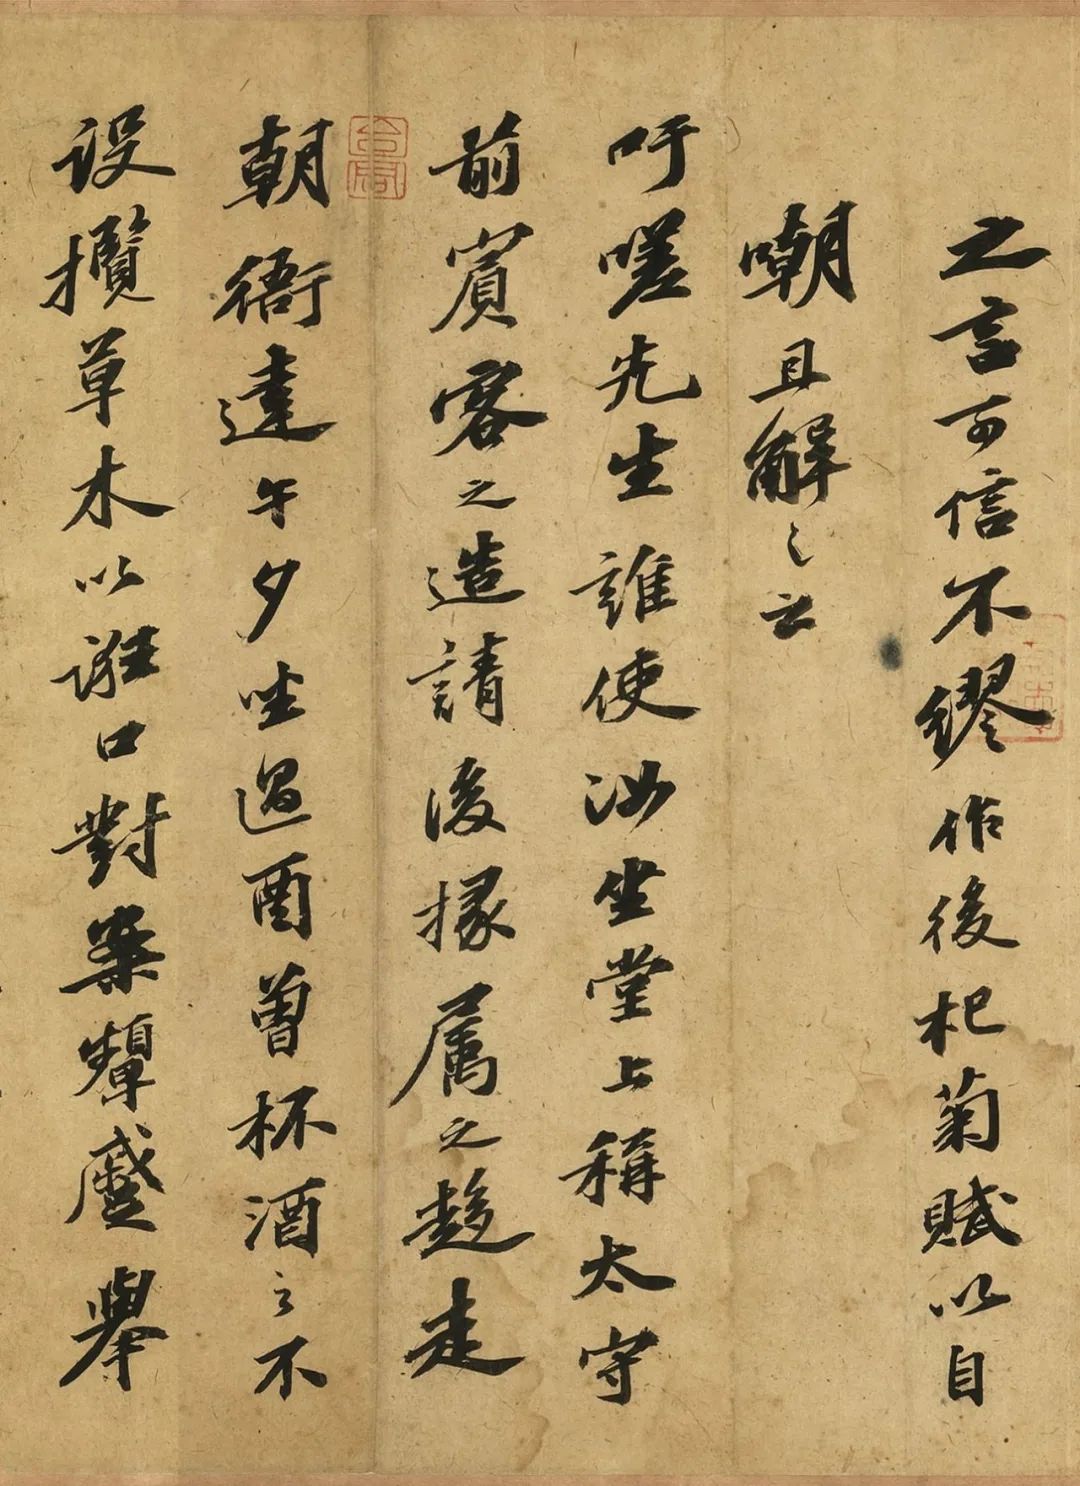 之言可信不繆作後杞菊賦以自
嘲且解之云
吁嗟先生誰使汝坐堂上稱太守
前賓客之造請後掾属之趨走
朝衙達午夕坐過酉曾杯酒之不
設攬草木以誑口對案顰蹙舉